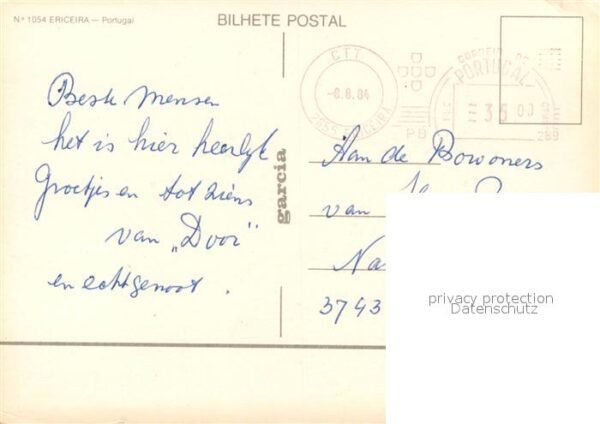 Nº 1054 ERICEIRA — Portugal
BILHETE POSTAL
CTT
-8.8.84
2655 ERICEIRA
PB
CORREIO DE
PORTUGAL
35 00
Beste mensen
het is hier heerlijk
Groetjes en tot ziens
van „Door"
en echtgenoot .
garcia
Aan de Bowoners
van
Na
3743
privacy protection
Datenschutz